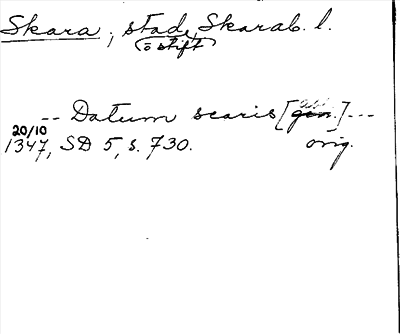 Skara, stad, Skarab. l.
o stift
-- Datum scaris [gen. abl.] ---
20/10
1347, SD 5, s. 730. orig.